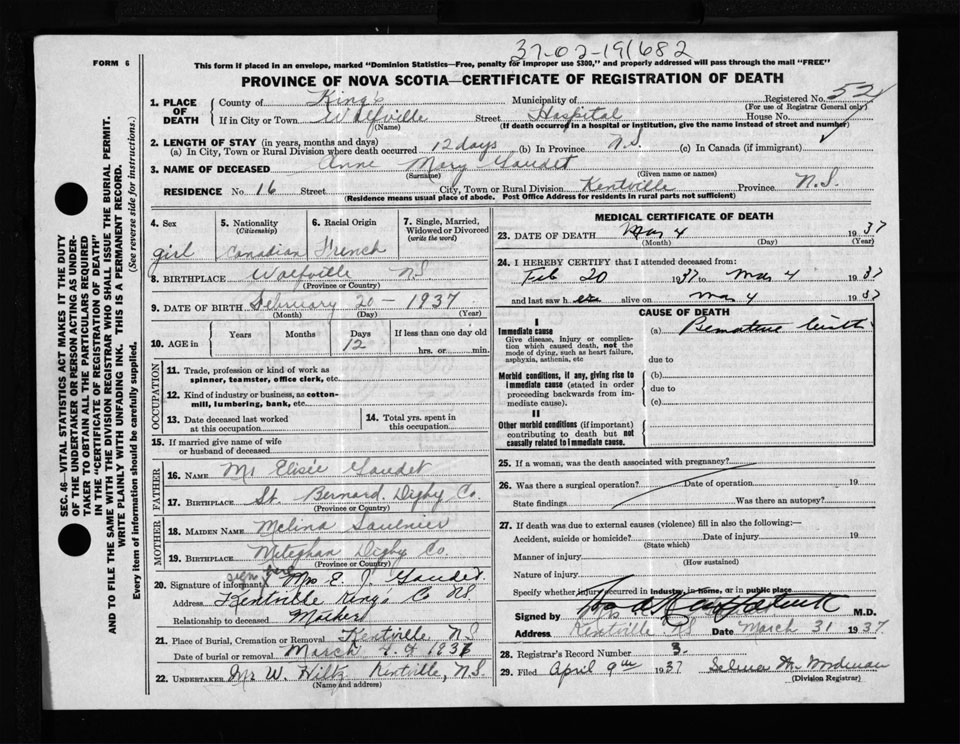 37-02-191682
FORM 6
This form if placed in an envelope, marked "Dominion Statistics—Free, penalty for improper use $300," and properly addressed will pass through the mail "FREE"
PROVINCE OF NOVA SCOTIA—CERTIFICATE OF REGISTRATION OF DEATH
1. PLACE OF DEATH County of King's Municipality of Registered No. 52
(For use of Registrar General only)
If in City or Town Wolfville Street Hospital House No.
(Name) (If death occurred in a hospital or institution, give the name instead of street and number)
2. LENGTH OF STAY (in years, months and days)
(a) In City, Town or Rural Division where death occurred 12 days (b) In Province N.S. (c) In Canada (if immigrant)
3. NAME OF DECEASED Anne Mary Gaudet
(Surname) (Given name or names)
RESIDENCE No. 16 Street City, Town or Rural Division Kentville Province N.S.
(Residence means usual place of abode. Post Office Address for residents in rural parts not sufficient)
4. Sex 5. Nationality (Citizenship) 6. Racial Origin 7. Single, Married, Widowed or Divorced (write the word)
girl Canadian French
8. BIRTHPLACE Wolfville NS
(Province or Country)
9. DATE OF BIRTH February 20 - 1937
(Month) (Day) (Year)
10. AGE in Years Months Days If less than one day old
12 hrs. or min.
OCCUPATION
11. Trade, profession or kind of work as spinner, teamster, office clerk, etc.
12. Kind of industry or business, as cotton-mill, lumbering, bank, etc.
13. Date deceased last worked at this occupation
14. Total yrs. spent in this occupation
15. If married give name of wife or husband of deceased
FATHER
16. NAME Mr Elisée Gaudet
17. BIRTHPLACE St. Bernard. Digby Co.
(Province or Country)
MOTHER
18. MAIDEN NAME Melina Saulnier
19. BIRTHPLACE Meteghan Digby Co.
(Province or Country)
20. Signature of informant Mrs E. J. Gaudet.
Address Kentville Kings Co NS
Relationship to deceased Mother
21. Place of Burial, Cremation or Removal Kentville NS
Date of burial or removal March 4. 1937
22. UNDERTAKER Mr W. Kentville, N.S.
(Name and address)
MEDICAL CERTIFICATE OF DEATH
23. DATE OF DEATH Mar 4 1937
(Month) (Day) (Year)
24. I HEREBY CERTIFY that I attended deceased from:
Feb 20 1937 to Mar 4 1937
and last saw h er alive on Mar 4 1937
CAUSE OF DEATH
I
Immediate cause (a) Premature birth
Give disease, injury or complication which caused death, not the mode of dying, such as heart failure, asphyxia, asthenia, etc
due to
Morbid conditions, if any, giving rise to immediate cause (stated in order proceeding backwards from immediate cause). (b)
due to
(c)
II
Other morbid conditions (if important) contributing to death but not causally related to immediate cause.
25. If a woman, was the death associated with pregnancy?
26. Was there a surgical operation? Date of operation 19
State findings Was there an autopsy?
27. If death was due to external causes (violence) fill in also the following:—
Accident, suicide or homicide? Date of injury 19
(State which)
Manner of injury
(How sustained)
Nature of injury
Specify whether injury occurred in industry, in home, or in public place
Signed by M.D.
Address Kentville NS Date March 31 1937
28. Registrar's Record Number 3.
29. Filed April 9th 1937 Selma M
(Division Registrar)
SEC. 46—VITAL STATISTICS ACT MAKES IT THE DUTY
OF THE UNDERTAKER OR PERSON ACTING AS UNDER-
TAKER TO OBTAIN ALL THE PARTICULARS REQUIRED
IN THE "CERTIFICATE OF REGISTRATION OF DEATH"
AND TO FILE THE SAME WITH THE DIVISION REGISTRAR WHO SHALL ISSUE THE BURIAL PERMIT.
WRITE PLAINLY WITH UNFADING INK. THIS IS A PERMANENT RECORD.
Every item of information should be carefully supplied. (See reverse side for instructions.)